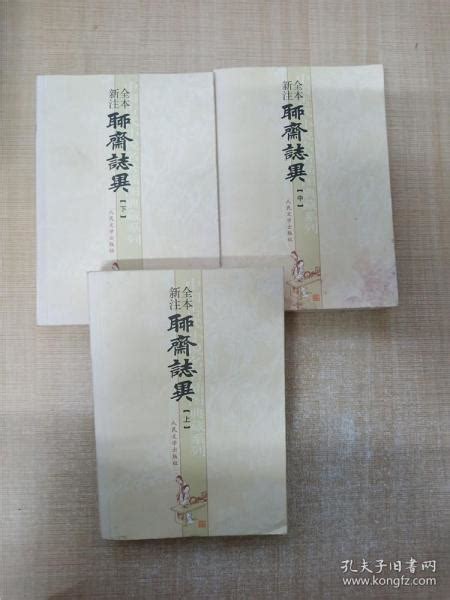 全本
新注
聊齋誌異
【下】
人民文学出版社
全本
新注
聊齋誌異
【中】
人民文学出版社
全本
新注
聊齋誌異
【上】
人民文学出版社
孔夫子旧书网
www.kongfz.com